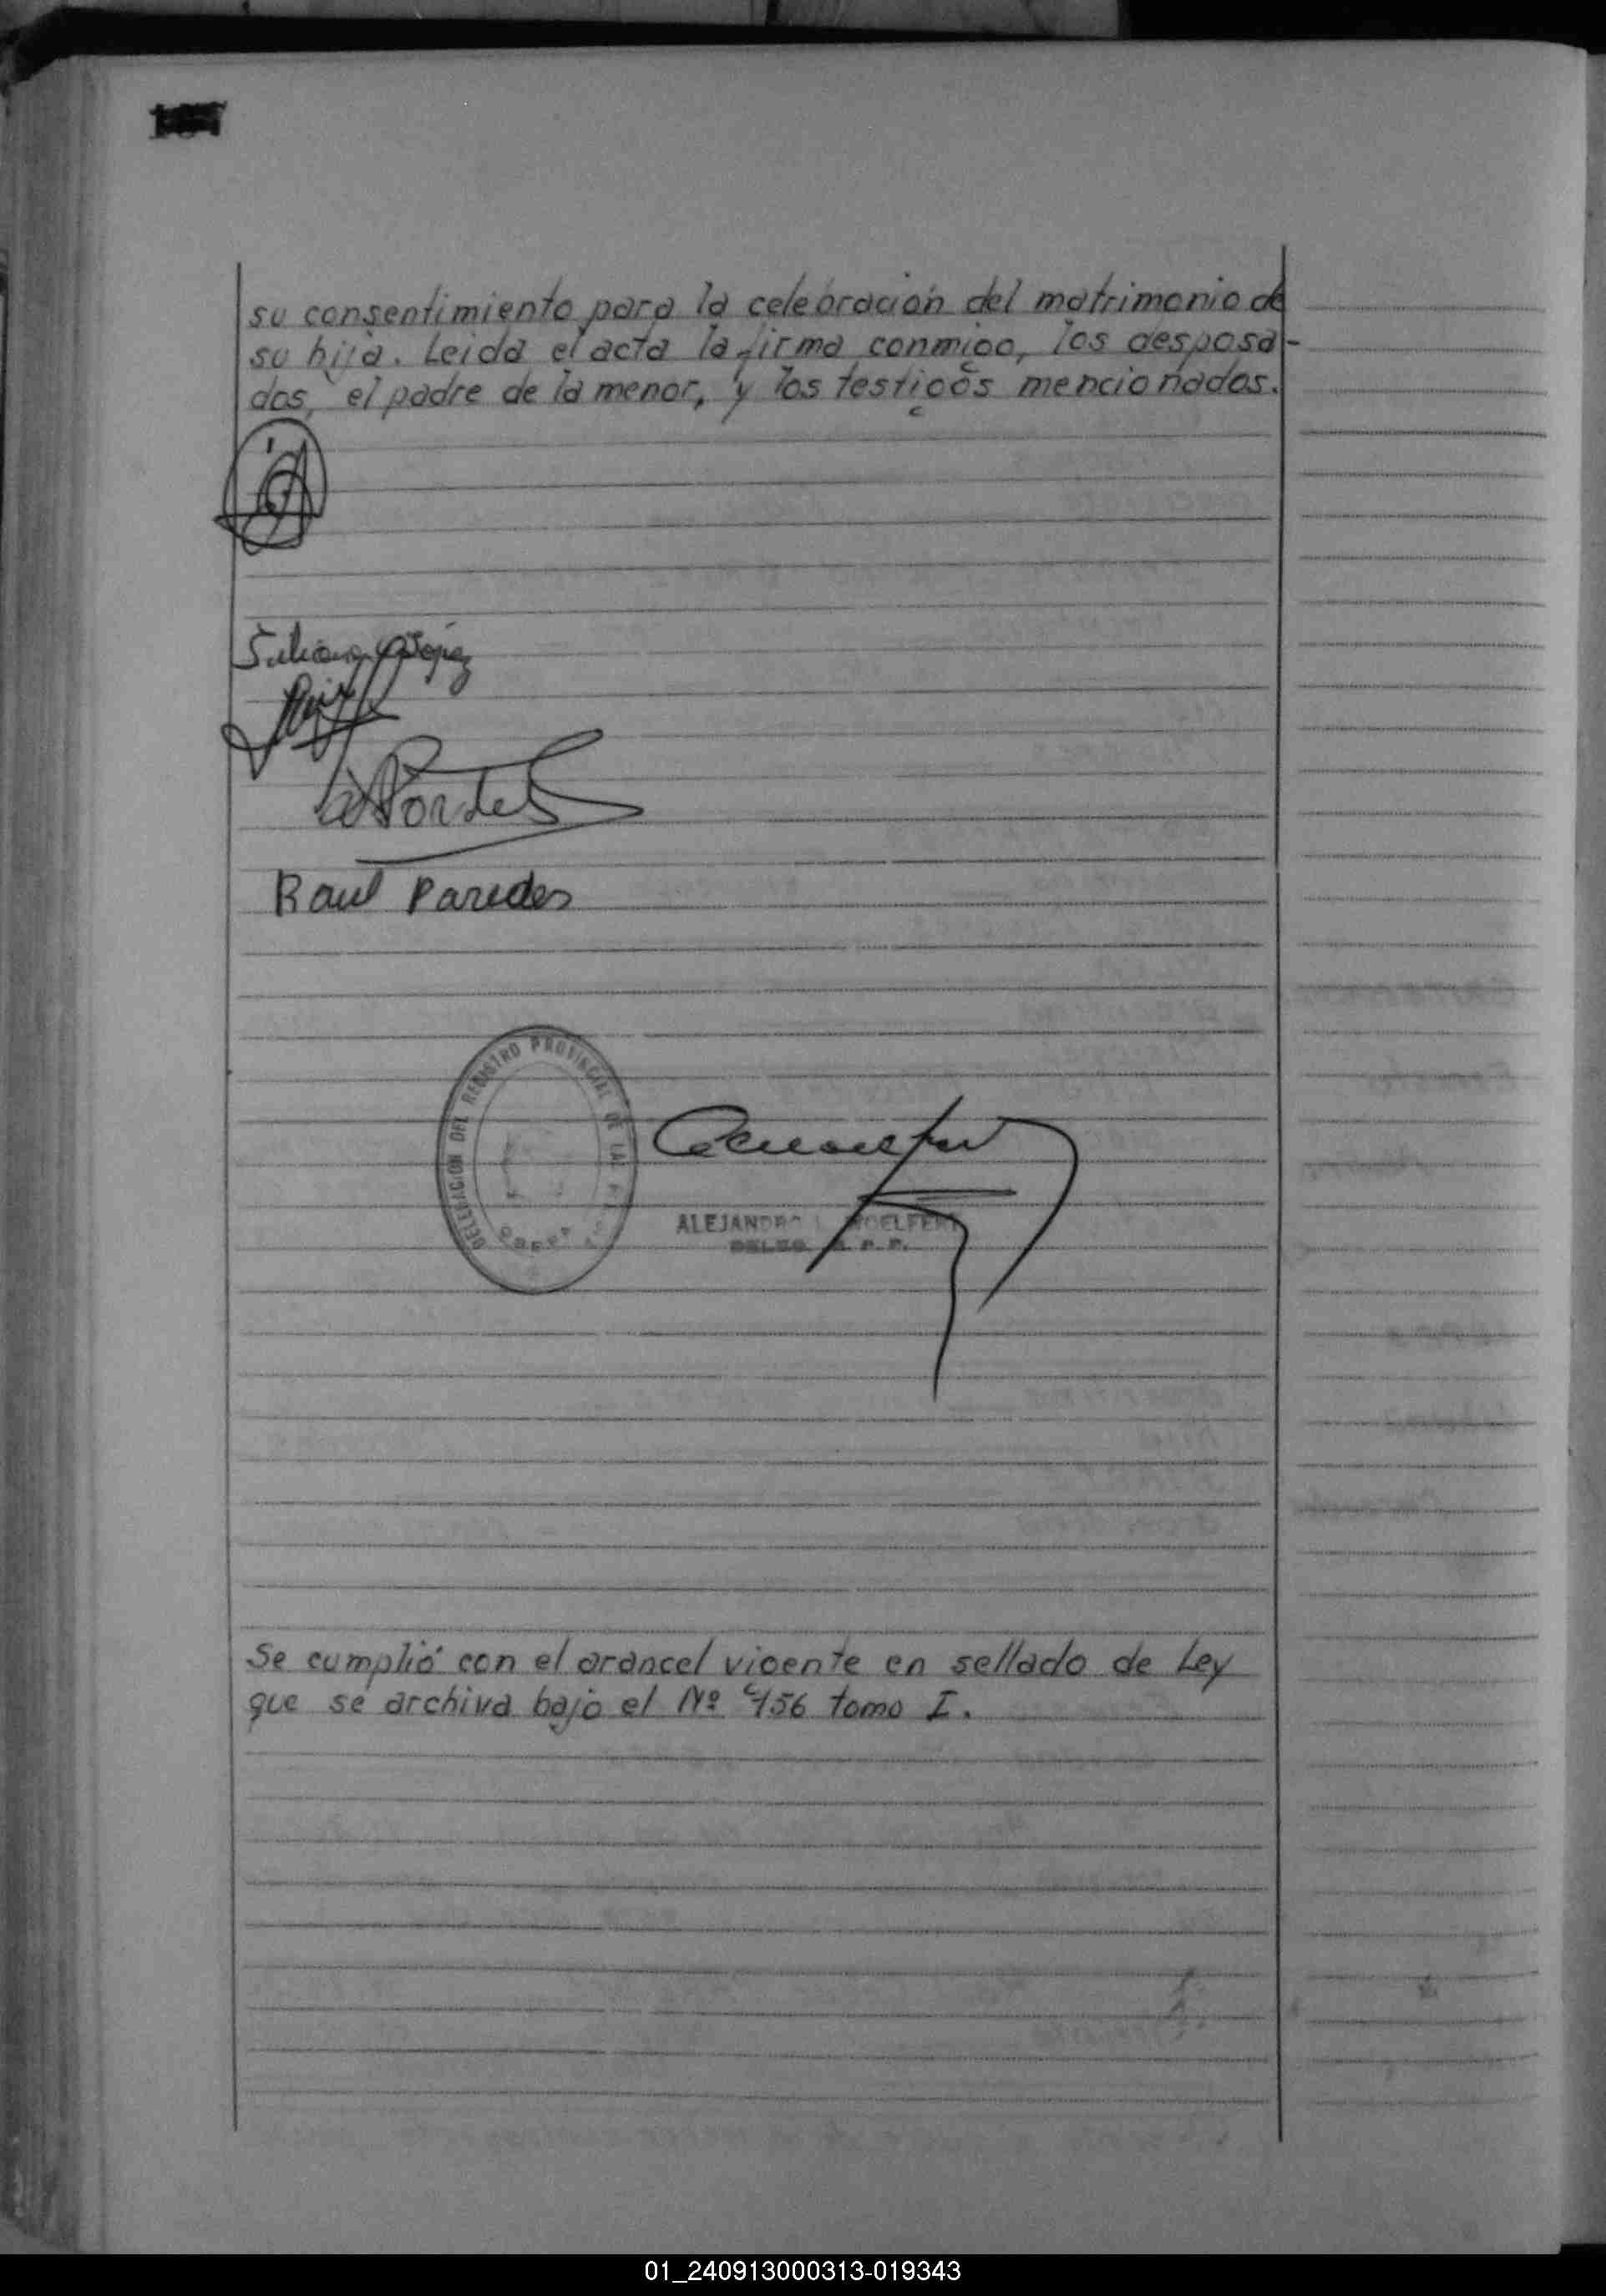 su consentimiento para la celebración del matrimonio de
su hija. Leida el acta la firma conmigo, los desposa-
dos, el padre de la menor, y los testigos mencionados.
López
Raul Paredes
DELEGACION DEL REGISTRO PROVINCIAL DE LAS
ALEJANDRO L. WOELFERT
Se cumplió con el arancel vigente en sellado de Ley
que se archiva bajo el Nº 456 tomo I.
01_240913000313-019343